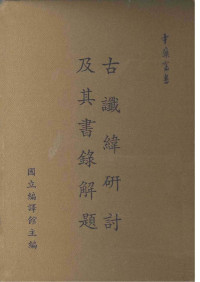 古讖緯研討
及其書錄解題
國立編譯館主編